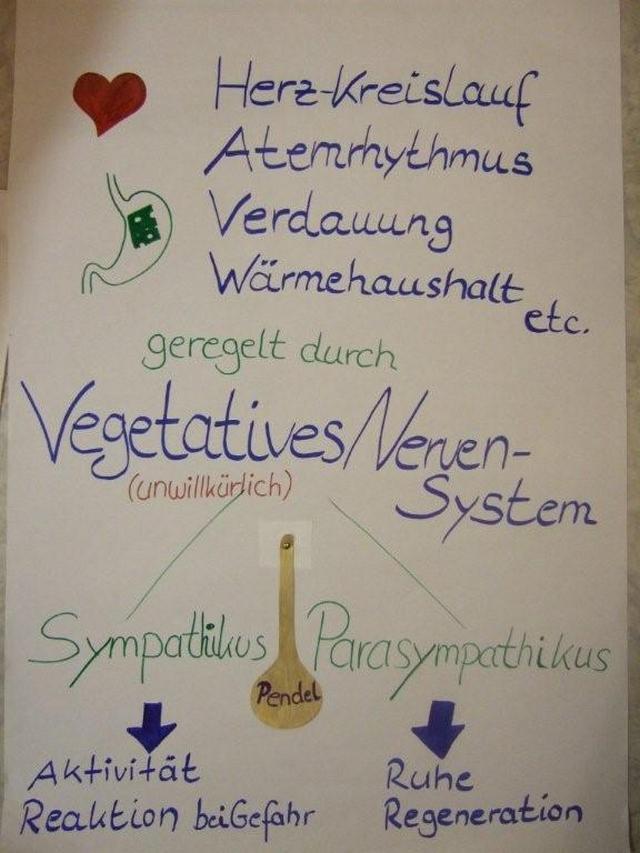 Herz-Kreislauf
Atemrhythmus
Verdauung
Wärmehaushalt
etc.
geregelt durch
Vegetatives Nerven-
(unwillkürlich) System
Sympathikus Parasympathikus
Pendel
Aktivität Ruhe
Reaktion bei Gefahr Regeneration